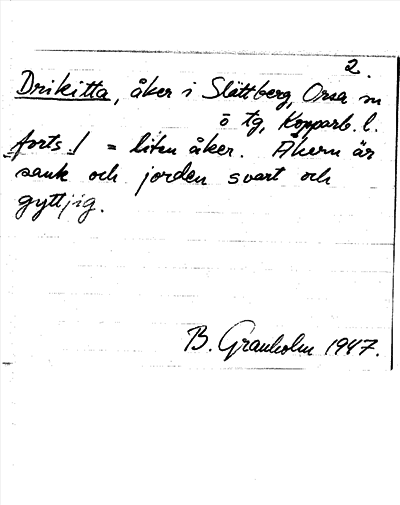 2.
Drikitta, åker i Slättberg, Orsa sn
ö tg, Kopparb. l.
forts! = liten åker. Åkern är
sank och jorden svart och
gyttjig.
B. Granholm 1947.